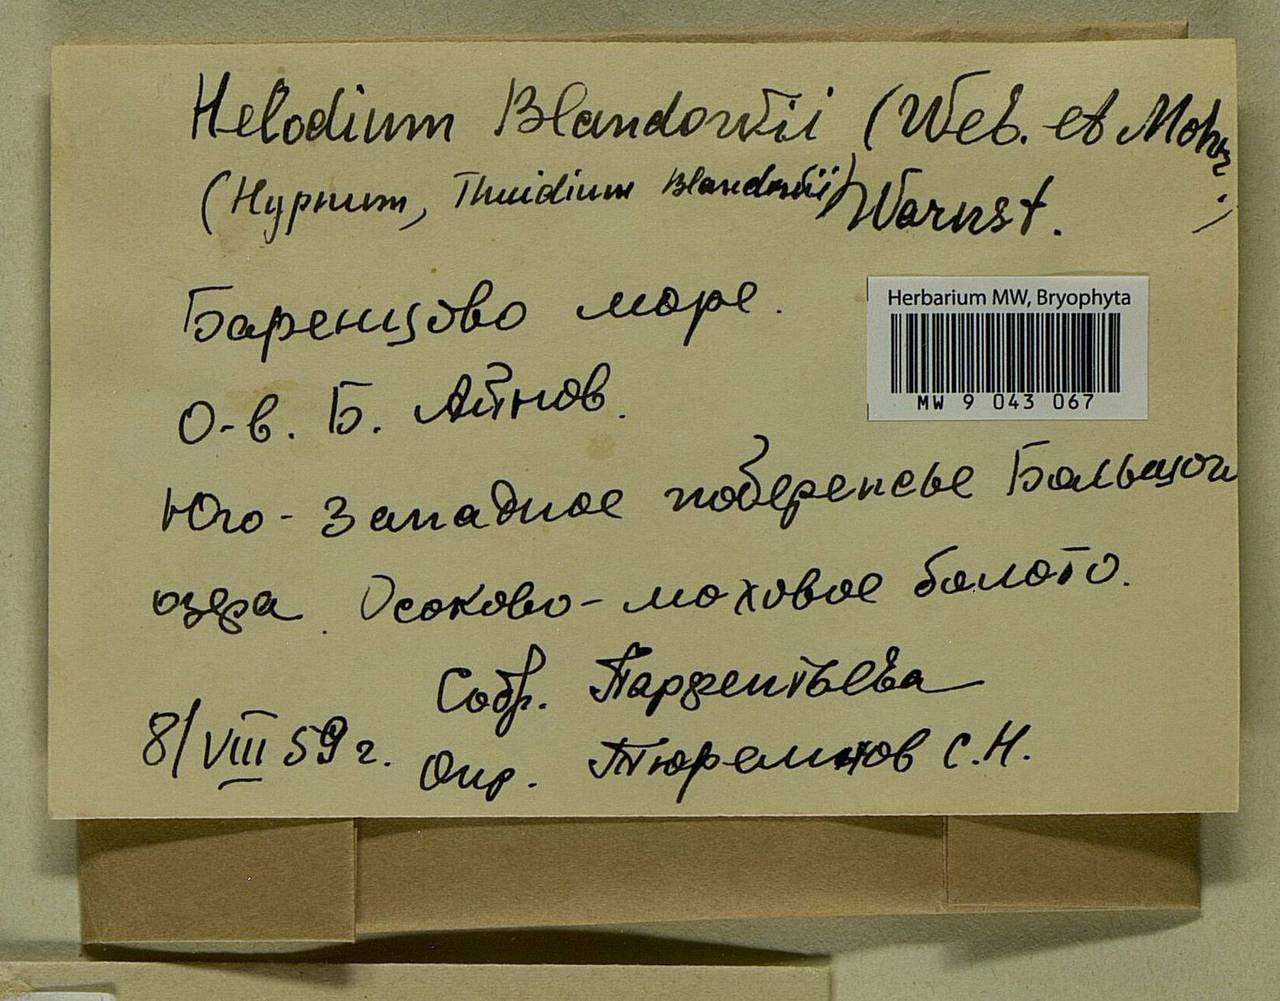 Helodium Blandowii (Web. et Mohr.)
(Hypnum, Thuidium Blandowii) Warnst.
Баренцово море.
Herbarium MW, Bryophyta
MW 9 043 067
О-в. Б. Айнов.
Юго-Западное побережье Большого
озера. Осоково-моховое болото.
Собр. Парфентьева
8/VIII 59 г. Опр. Тюремнов С.Н.